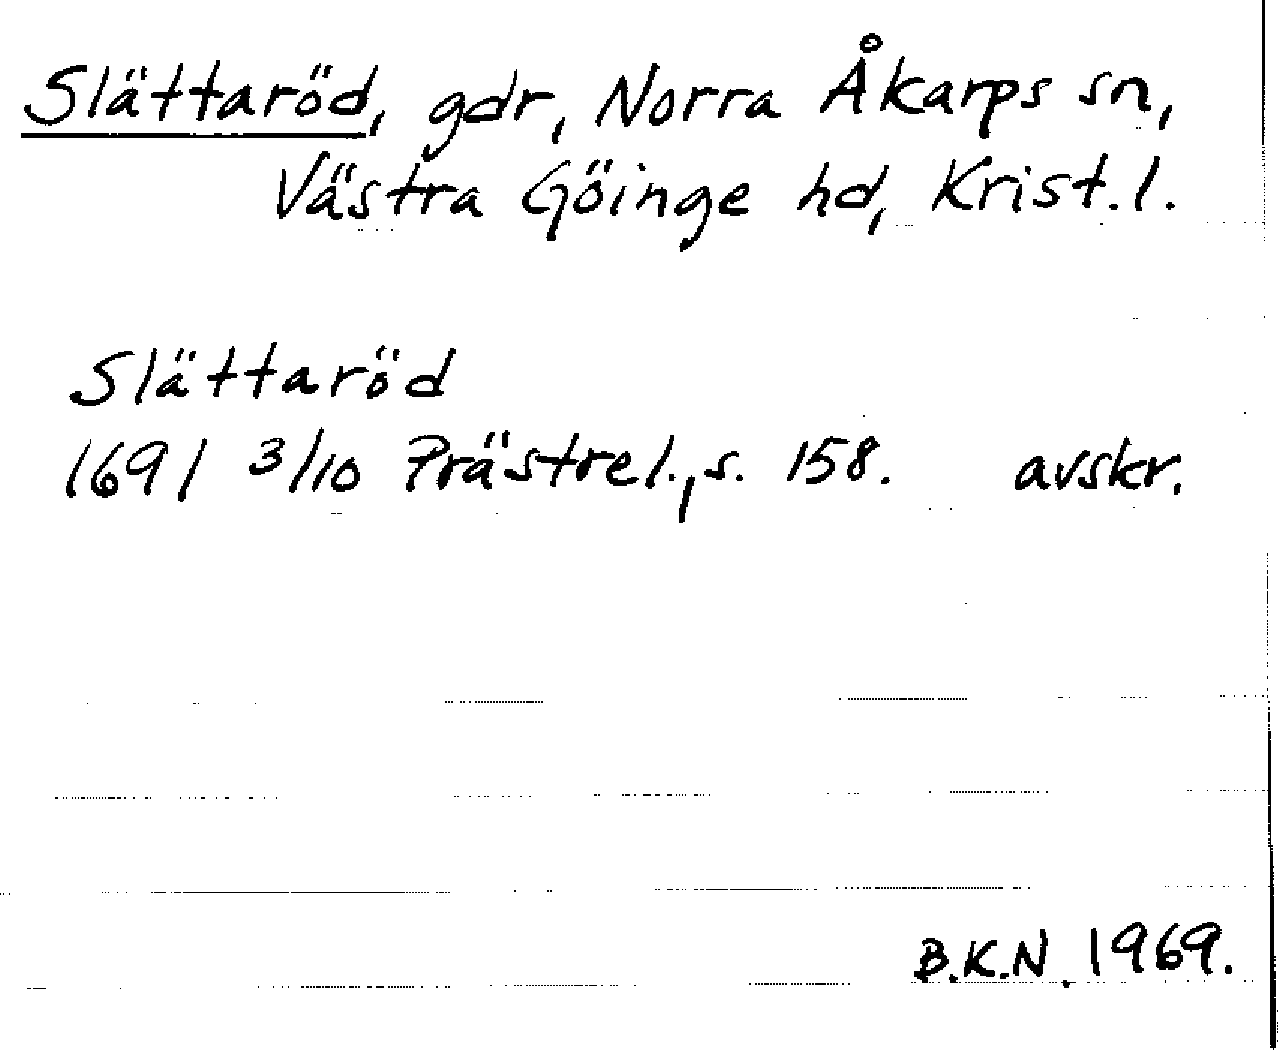 Slättaröd, gdr, Norra Åkarps sn,
Västra Göinge hd, Krist. l.
Slättaröd
1691 3/10 Prästrel., s. 158. avskr.
B.K.N. 1969.